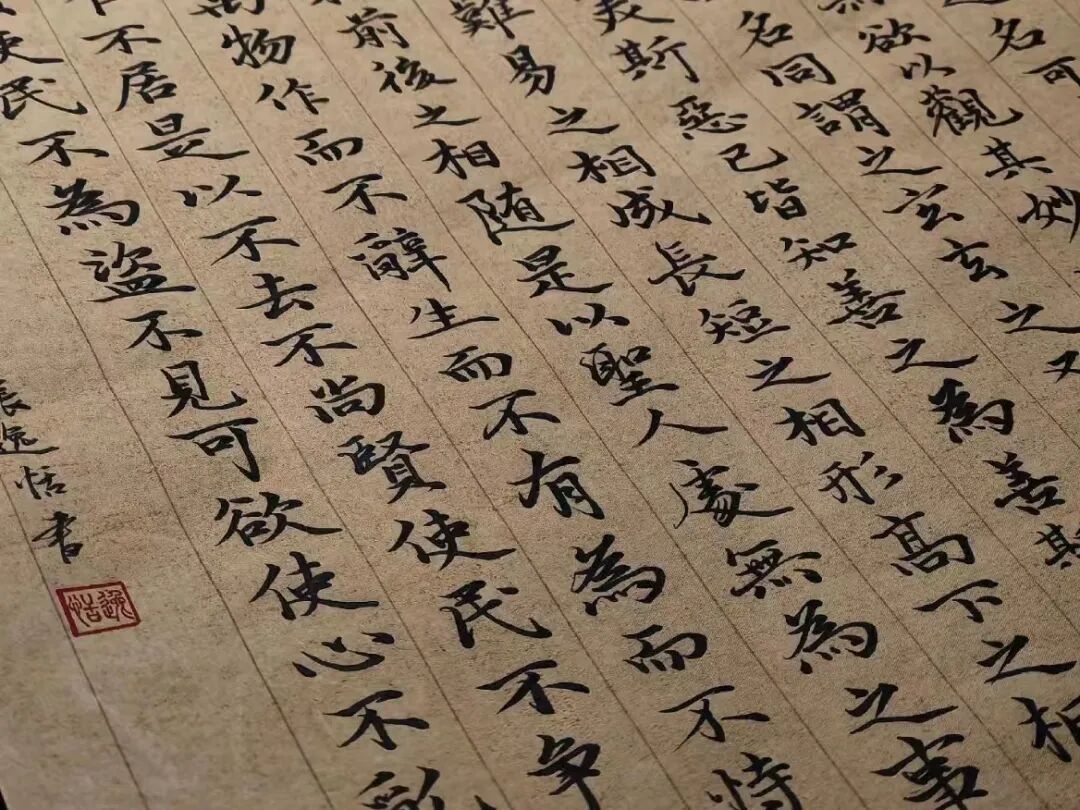 名可
欲以觀其妙
名同謂之玄玄之又
美斯惡已皆知善之為善
難易之相成長短之相形高下之相
前後之相随是以聖人處無為之事
萬物作而不辭生而不有為而不恃
不居是以不去不尚賢使民不争
使民不為盜不見可欲使心不亂
張逸恬書
逸恬